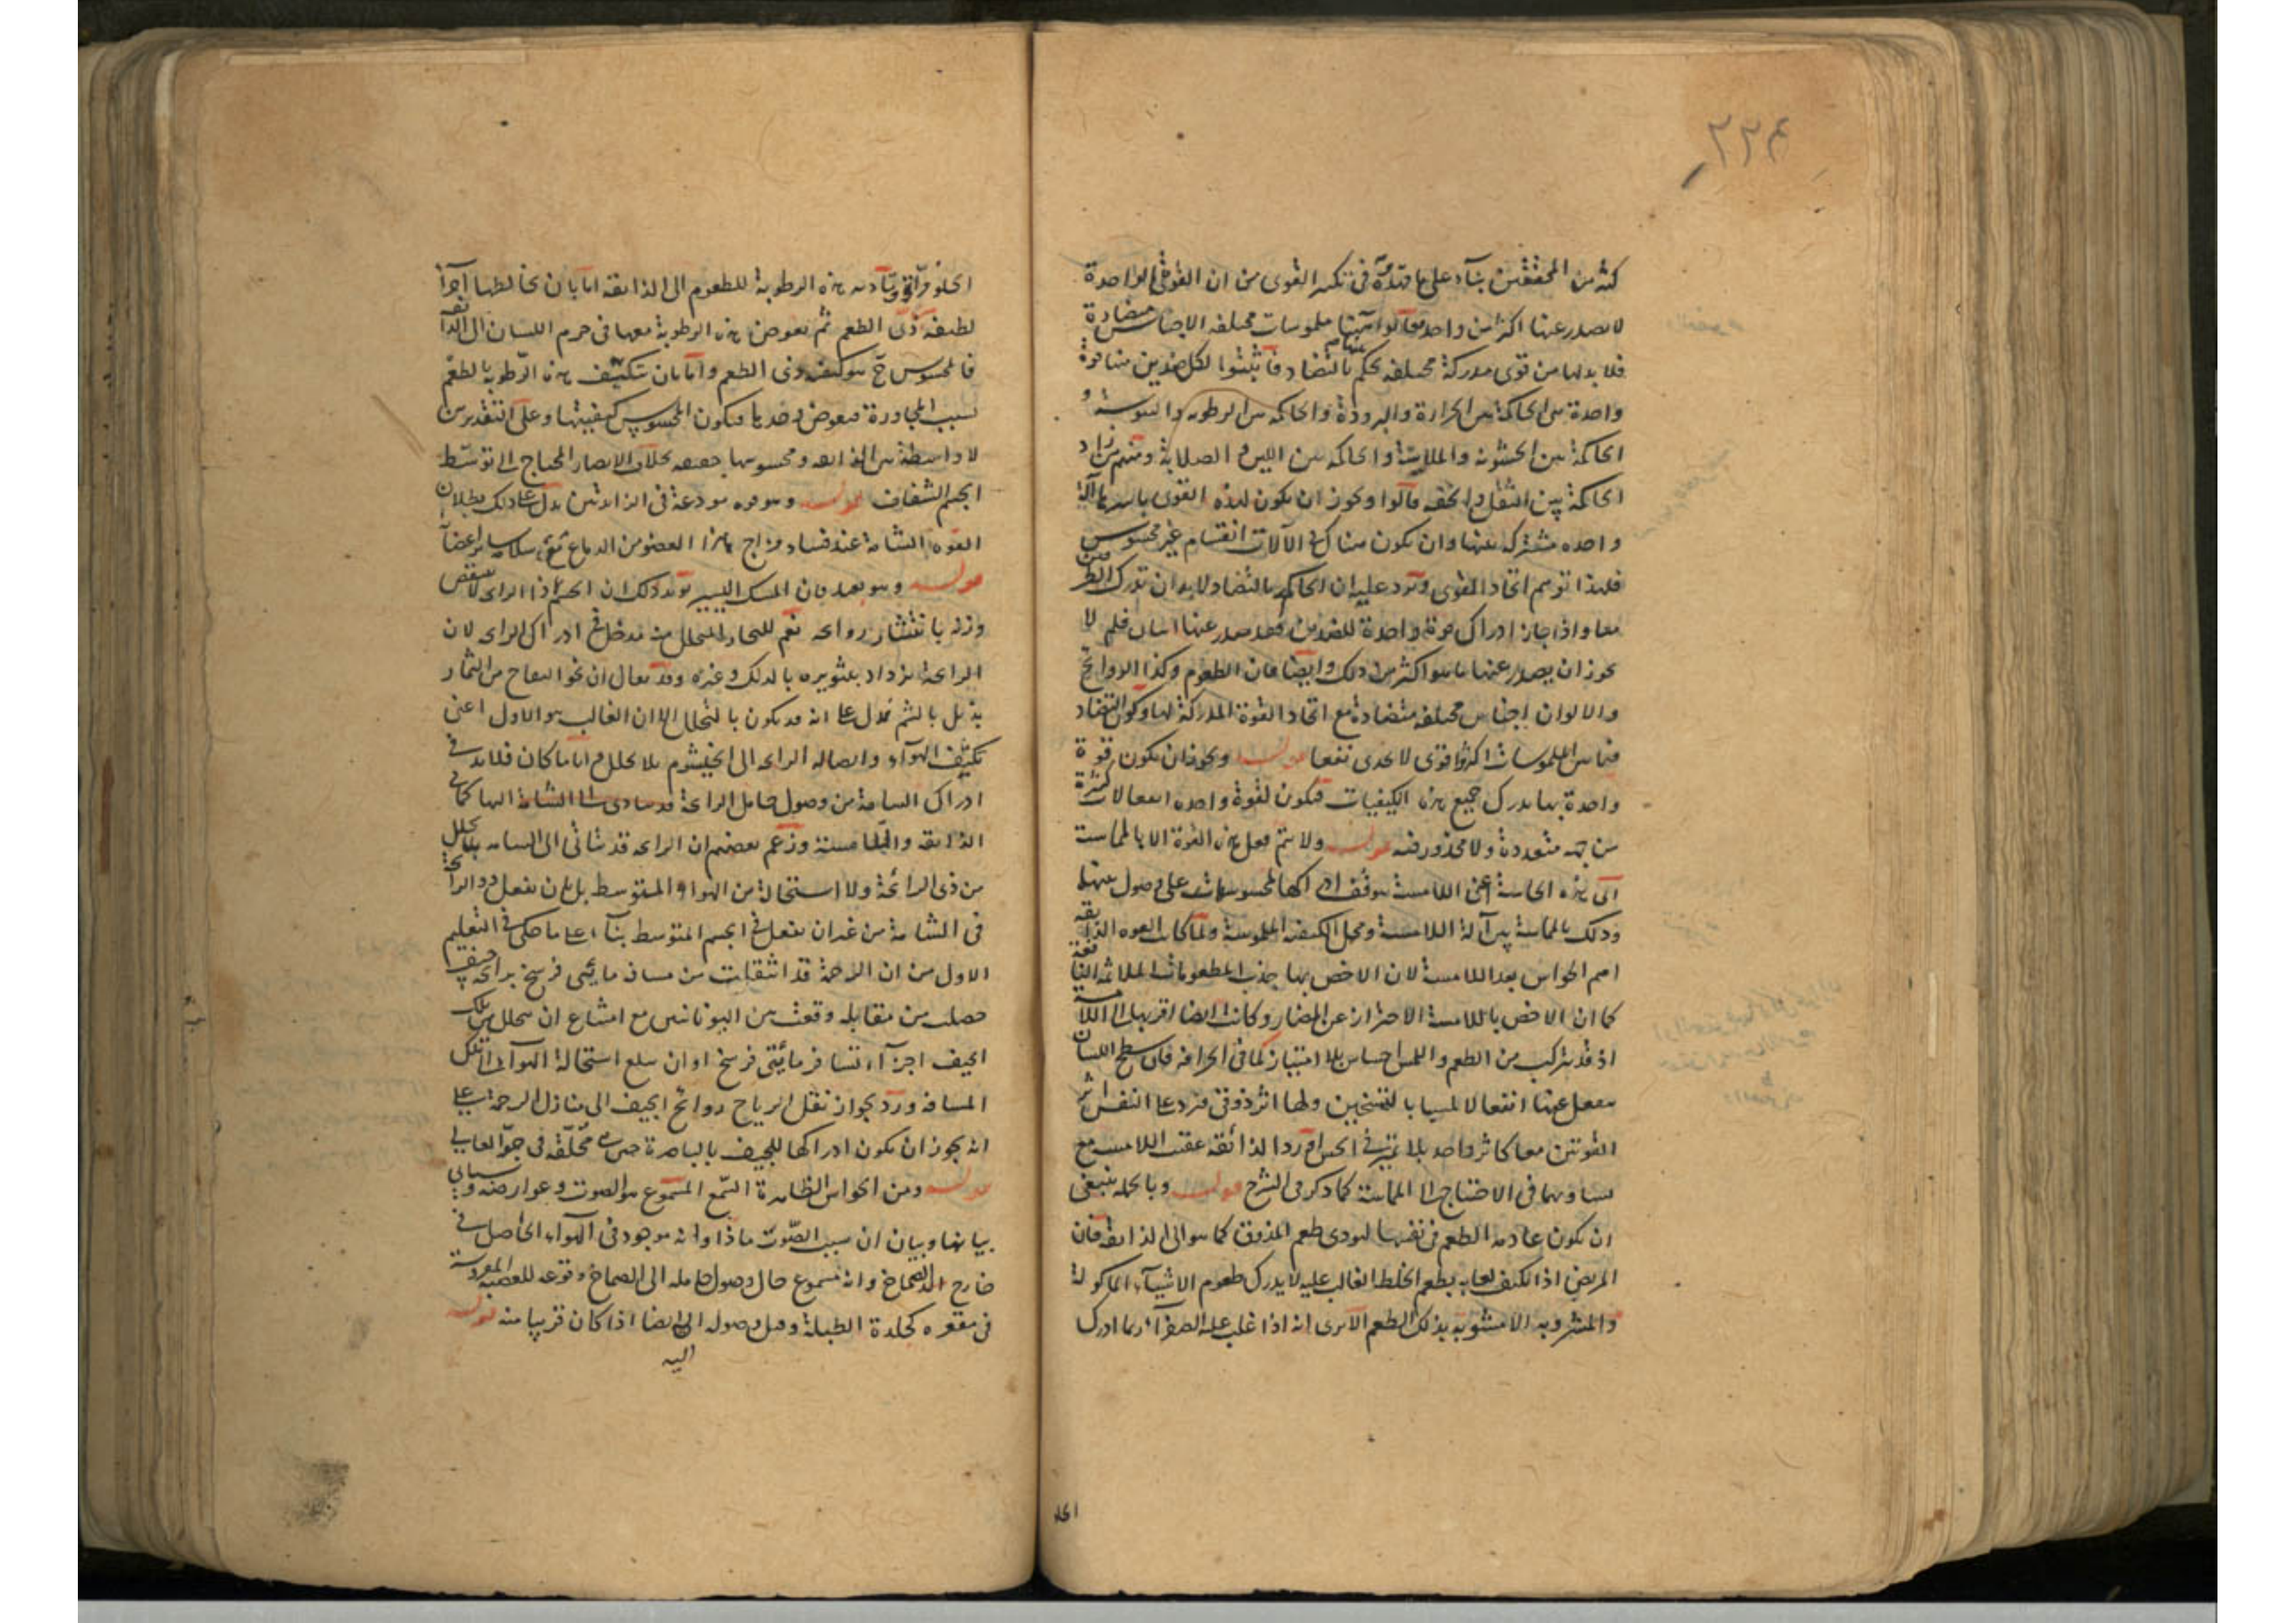 ٢٢٤
كثير من المحققين بناء على ما قدمه في تكثير القوى من ان القوة الواحدة
لا يصدر عنها اكثر من واحد فقالوا ههنا ملموسات مختلفة الاجناس متضادة
فلا بد لها من قوى مدركة مختلفة تحكم بالتضاد فاثبتوا لكل ضدين منها قوة
واحدة هي الحاكمة بين الحرارة والبرودة والحاكمة بين الرطوبة واليبوسة و
الحاكمة بين الخشونة والملاسة والحاكمة بين اللين والصلابة ومنهم من زاد
الحاكمة بين الثقل والخفة قالوا ويجوز ان يكون لهذه القوى باسرها آلة
واحدة مشتركة بينها وان يكون هناك في الآلات انقسام غير محسوس
فلهذا توهم اتحاد القوى ويرد عليه ان الحاكم بالتضاد لا بد ان يدرك الطرفين
معا واذا جاز ادراك قوة واحدة للضدين فقد صدر عنها اثنان فلم لا
يجوز ان يصدر عنها ما هو اكثر من ذلك وايضا فان الطعوم وكذا الروائح
والالوان اجناس مختلفة متضادة مع اتحاد القوة المدركة لها وكون التضاد
فيما بين الملموسات اكثر واقوى لا يجدى نفعا قوله ويجوز ان يكون قوة
واحدة بها يدرك جميع هذه الكيفيات فيكون لقوة واحدة انفعالات كثيرة
من جهة متعددة ولا محذور فيه قوله ولا يتم فعل هذه القوة الا بالمماسة
اى هذه الحاسة اعنى اللامسة يتوقف ادراكها لمحسوسات على وصول بينها
وذلك بالمماسة بين آلة اللامسة ومحل الكيفية الملموسة ولما كانت القوة الذائقة
اهم الحواس بعد اللامسة لان الاخص بها جذب المطعومات الملائمة النافعة
كما ان الاخص باللامسة الاحتراز عن المضار وكانت ايضا اقربها الى اللامسة
اذ قد يتركب من الطعم واللمس احساس بلا امتياز كما في الحرافة فان سطح اللسان
ينفعل عنها انفعالا لمسيا بالتسخين ولها اثر ذوقى فيرد على النفس اثر
القوتين معا كاثر واحد بلا تميز في الحس اورد الذائقة عقيب اللامسة مع
تساويهما في الاحتياج الى المماسة كما ذكر في الشرح قوله وبالجملة ينبغى
ان يكون عادمة الطعم في نفسها ليؤدى طعم المذوق كما هو الى الذائقة فان
المريض اذا تكيف لعابه بطعم الخلط الغالب عليه لا يدرك طعوم الاشياء الماكولة
والمشروبة الا مشوبة بذلك الطعم الا ترى انه اذا غلب عليه الصفراء ربما ادرك
الحلو
الحلو مرا قوله وتأدية هذه الرطوبة للطعوم الى الذائقة اما بان يخالطها اجزاء
لطيفة ذى الطعم ثم تغوص هذه الرطوبة معها في جرم اللسان الى الذائقة
فالمحسوس ح هو كيفية ذى الطعم واما بان تتكيف هذه الرطوبة بالطعم
بسبب المجاورة فتغوص وحدها فيكون المحسوس كيفيتها وعلى التقديرين
لا واسطة بين الذائقة ومحسوسها حقيقة بخلاف الابصار المحتاج الى توسط
الجسم الشفاف قوله وهو قوة مودعة في الزائدتين يدل على ذلك بطلان
القوة الشامة عند فساد مزاج هذا العضو من الدماغ مع سلامة سائر اعضائه
قوله وهو بعيد فان المسك اليسير يؤيد ذلك ان الجسم ذا الرائحة لا ينقص
وزنه بانتشار روائحه نعم للبخار المتحلل منه مدخل في ادراك الرائحة لان
الرائحة تزداد بتثويره بالدلك وغيره وقد يقال ان نحو التفاح من الثمار
يذبل بالشم فدل على انه قد يكون بالتحلل الا ان الغالب هو الاول اعنى
تكيف الهواء وايصاله الرائحة الى الخيشوم بلا تحلل واياما كان فلا بد في
ادراك الشامة من وصول حامل الرائحة قد يتأدى الى الشامة اليها كما في
الذائقة واللامسة وزعم بعضهم ان الرائحة قد تتأتى الى الشامة بلا تحلل
من ذى الرائحة ولا استحالة من الهواء المتوسط بل بان يفعل ذو الرائحة
في الشامة من غير ان يفعل في الجسم المتوسط بناء على ما حكى في التعليم
الاول من ان الرخمة قد انتقلت من مسافة مائتى فرسخ برائحة جيف
حصلت من مقاتلة وقعت بين اليونانيين مع امتناع ان يتحلل من تلك
الجيف اجزاء تسافر مائتى فرسخ او ان يبلغ استحالة الهواء الى تلك
المسافة ورد بجواز نقل الرياح روائح الجيف الى منازل الرخمة على
انه يجوز ان يكون ادراكها للجيف بالباصرة حين هى محلقة في جو العالى
قوله ومن الحواس الظاهرة السمع المسموع هو الصوت وعوارضه وسيأتى
بيانها وبيان ان سبب الصوت ماذا وانه موجود في الهواء الحاصل في
خارج الصماخ وانه مسموع حال وصول حامله الى الصماخ وقرعه للعصبة المفروشة
في مقعره كجلدة الطبلة وقبل وصوله اليه ايضا اذا كان قريبا منه قوله
اليه